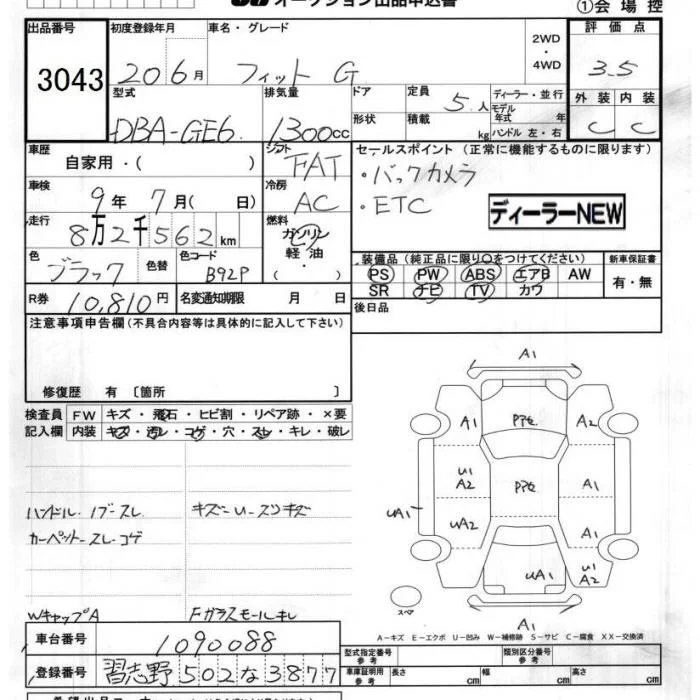 オークション出品申込書
①会場控
出品番号
3043
初度登録年月
20 6月
車名・グレード
フィット G
2WD
・
4WD
評価点
3.5
外装 内装
C C
型式
DBA-GE6
排気量
1300cc
ドア
形状
定員
5人
積載
kg
ディーラー・並行
モデル
年式 年
ハンドル 左・右
車歴
自家用・( )
シフト
FAT
セールスポイント (正常に機能するものに限ります)
・バックカメラ
・ETC
ディーラーNEW
車検
9年 7月( 日)
冷房
AC
走行
8万2千562km
燃料
ガソリン
軽油・
( )
色
ブラック
色替
色コード
B92P
装備品 (純正品に限り○をつけてください)
PS PW ABS エアB AW
SR ナビ TV カワ
新車保証書
有・無
R券
10,810円
名変通知期限 月 日
後日品
注意事項申告欄(不具合内容等は具体的に記入して下さい)
修復歴 有 〔箇所 〕
検査員
記入欄
FW キズ・飛石・ヒビ割・リペア跡・×要
内装 キズ・汚レ・コゲ・穴・スレ・キレ・破レ
ハンドル・ノブースレ
カーペットースレ・コゲ
キズ
WキャップA
Fガラスモールキレ
A1
A1
A2
U1
A2
A1
UA1
UA2
A1
UA1
U1
A2
A1
スペア
A-キズ E-エクボ U-凹み W-補修跡 S-サビ C-腐食 XX-交換済
車台番号
1090088
登録番号
習志野 502 な 3877
型式指定番号
参考
類別区分番号
参考
車庫証明用
参考
長さ cm
幅 cm
高さ cm